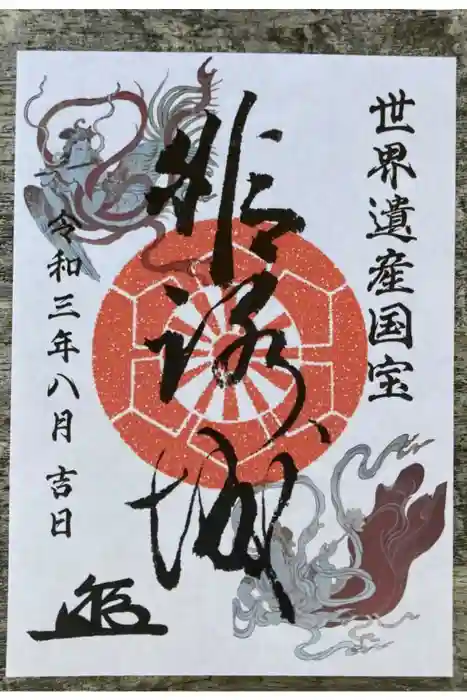 世界遺産国宝
姫路城
令和三年八月 吉日